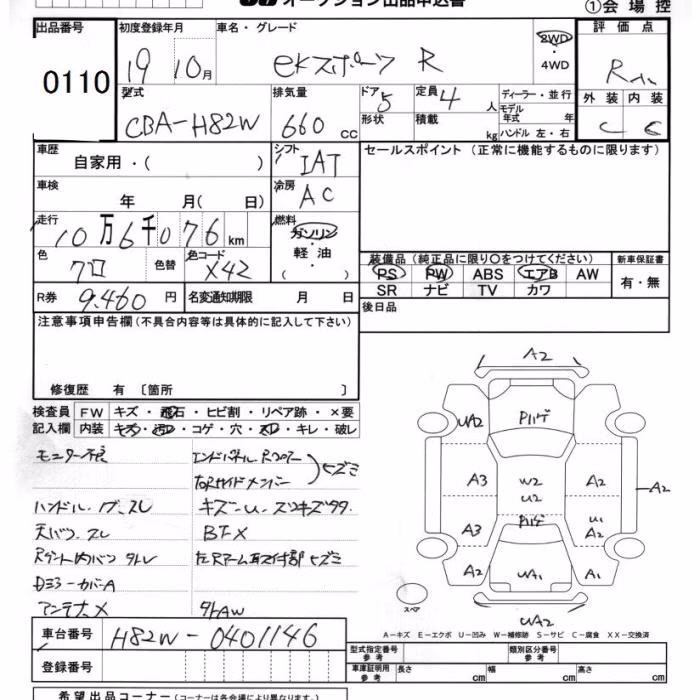 オークション出品申込書
①会場控
出品番号 初度登録年月 車名・グレード 評価点
0110
19 10月 ekスポーツ R 2WD・4WD R
型式 排気量 ドア 定員 ディーラー・並行 外装 内装
CBA-H82W 660cc 5 4人 モデル年式 年 C C
形状 積載 kg ハンドル 左・右
車歴 シフト セールスポイント(正常に機能するものに限ります)
自家用・( ) IAT
車検 年 月( 日) 冷房 AC
走行 燃料
10万6千076km ガソリン・軽油・( )
色 色替 色コード 装備品(純正品に限り〇をつけてください) 新車保証書
クロ X42 PS PW ABS エアB AW 有・無
SR ナビ TV カワ
R券 9,460円 名変通知期限 月 日 後日品
注意事項申告欄(不具合内容等は具体的に記入して下さい)
修復歴 有 〔箇所 〕
検査員 FW キズ・飛石・ヒビ割・リペア跡・×要
記入欄 内装 キズ・汚レ・コゲ・穴・スレ・キレ・破レ
モニター不良
エンドパネル・Rフロアー
左右Rサイドメンバー
ヒズミ
ハンドル・ スレ キズ・U・スリキズ
天バリ スレ BTX
左Rアーム取付部ヒズミ
カバーA
アンテナX
社外AW
A2
UA2 Pハゲ
A3 W2 U2 A2 A2
A3 Pハゲ U1 A2
A2 UA1 A1
スペア
UA2
A-キズ E-エクボ U-凹み W-補修跡 S-サビ C-腐食 XX-交換済
車台番号 H82W-0401146
型式指定番号 参考 類別区分番号 参考
登録番号
車庫証明用 参考 長さ cm 幅 cm 高さ cm
希望出品コーナー(コーナーは各会場により異なります。)